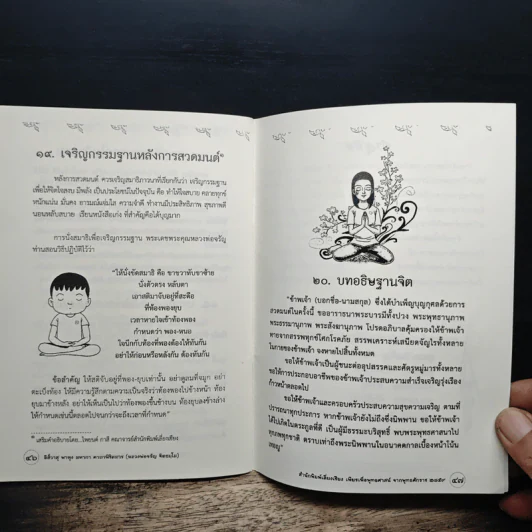 ๑๙. เจริญกรรมฐานหลังการสวดมนต์*
หลังการสวดมนต์ ควรเจริญสมาธิภาวนาที่เรียกกันว่า เจริญกรรมฐาน
เพื่อให้จิตใจสงบ มีพลัง เป็นประโยชน์ในปัจจุบัน คือ ทำให้ใจสบาย คลายทุกข์
หนักแน่น มั่นคง อารมณ์แจ่มใส ความจำดี ทำงานมีประสิทธิภาพ สุขภาพดี
นอนหลับสบาย เรียนหนังสือเก่ง ที่สำคัญคือได้บุญมาก
การนั่งสมาธิเพื่อเจริญกรรมฐาน พระเดชพระคุณหลวงพ่อจรัญ
ท่านสอนวิธีปฏิบัติไว้ว่า
“ให้นั่งขัดสมาธิ คือ ขาขวาทับขาซ้าย
นั่งตัวตรง หลับตา
เอาสติมาจับอยู่ที่สะดือ
ที่ท้องพองยุบ
เวลาหายใจเข้าท้องพอง
กำหนดว่า พอง-หนอ
ใจนึกกับท้องที่พองต้องให้ทันกัน
อย่าให้ก่อนหรือหลังกัน ต้องทันกัน
ข้อสำคัญ ให้สติจับอยู่ที่พอง-ยุบเท่านั้น อย่าดูลมที่จมูก อย่า
ตะเบ็งท้อง ให้มีความรู้สึกตามความเป็นจริงว่าท้องพองไปข้างหน้า ท้อง
ยุบมาข้างหลัง อย่าให้เห็นเป็นไปว่าท้องพองขึ้นข้างบน ท้องยุบลงข้างล่าง
ให้กำหนดเช่นนี้ตลอดไปจนกว่าจะถึงเวลาที่กำหนด”
๔๖
๒๐. บทอธิษฐานจิต
“ข้าพเจ้า (บอกชื่อ-นามสกุล) ซึ่งได้บำเพ็ญบุญกุศลด้วยการ
สวดมนต์ในครั้งนี้ ขออาราธนาพระบารมีทั้งปวง พระพุทธานุภาพ
พระธรรมานุภาพ พระสังฆานุภาพ โปรดอภิบาลคุ้มครองให้ข้าพเจ้า
หายจากสรรพทุกข์โศกโรคภัย สรรพเคราะห์เสนียดจัญไรทั้งหลาย
ในกายของข้าพเจ้า จงหายไปสิ้นทั้งหมด
ขอให้ข้าพเจ้าเป็นผู้ชนะต่ออุปสรรคและศัตรูหมู่มารทั้งหลาย
ขอให้การประกอบอาชีพของข้าพเจ้าประสบความสำเร็จเจริญรุ่งเรือง
ก้าวหน้าตลอดไป
ขอให้ข้าพเจ้าและครอบครัวประสบความสุขความเจริญ ตามที่
ปรารถนาทุกประการ หากข้าพเจ้ายังไม่ถึงซึ่งนิพพาน ขอให้ข้าพเจ้า
ได้ไปเกิดในตระกูลที่ดี เป็นผู้มีธรรมะบริสุทธิ์ พบพระพุทธศาสนาไป
ทุกภพทุกชาติ ตราบเท่าถึงพระนิพพานในอนาคตกาลเบื้องหน้าโน้น
เทอญ”
สำนักพิมพ์เลี่ยงเชียง เพียรเพื่อพุทธศาสน์ จากพุทธศักราช ๒๔๕๙
๔๗